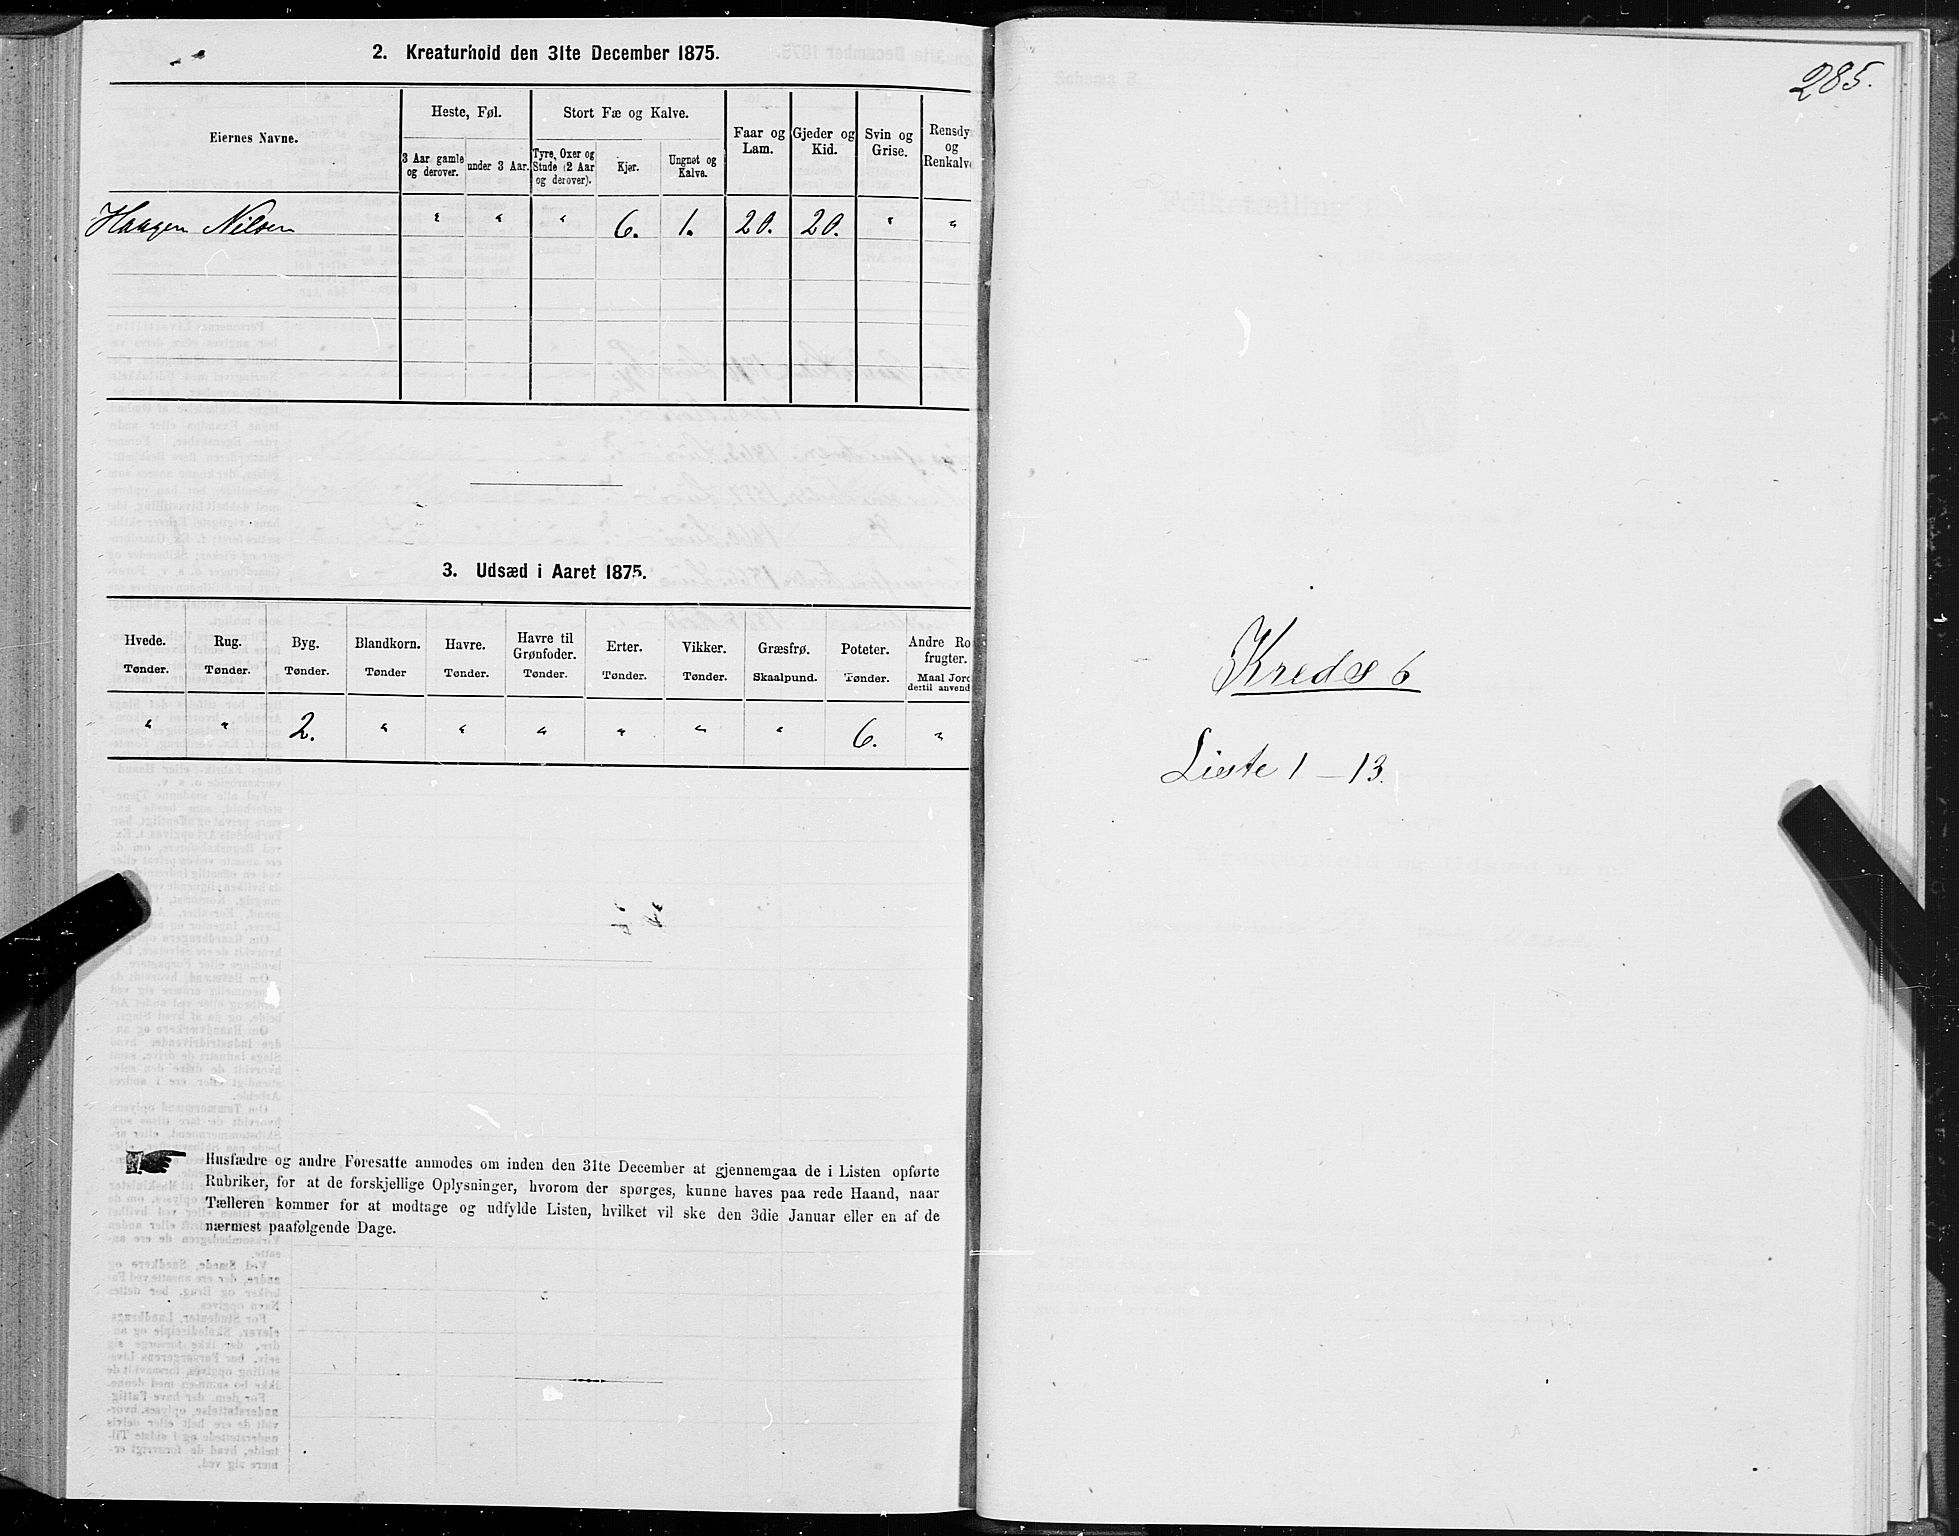 2. Kreaturhold den 31te December 1875.
Eiernes Navne.
Heste, Føl.
Stort Fæ og Kalve.
Faar og Lam.
Gjeder og Kid.
Svin og Grise.
Rensdy og Renkalve
3 Aar gamle og derover.
under 3 Aar.
Tyre, Oxer og Stude (2 Aar og derover).
Kjør.
Ungnøt og Kalve.
Haagen Nilsen " " " 6. 1. 20. 20. " "
3. Udsæd i Aaret 1875.
Hvede. Rug. Byg. Blandkorn. Havre. Havre til Grønfoder. Erter. Vikker. Græsfrø. Poteter. Andre Ro frugter.
Tønder. Tønder. Tønder. Tønder Tønder. Tønder. Tønder. Tønder. Skaalpund. Tønder. Maal Jord dertil anvend
" " 2. " " " " " " 6. "
Husfædre og andre Foresatte anmodes om inden den 31te December at gjennemgaa de i Listen opførte
Rubriker, for at de forskjellige Oplysninger, hvorom der spørges, kunne haves paa rede Haand, naar
Tælleren kommer for at modtage og udfylde Listen, hvilket vil ske den 3die Januar eller en af de
nærmest paafølgende Dage.
285.
Kreds 6
Liste 1 - 13.